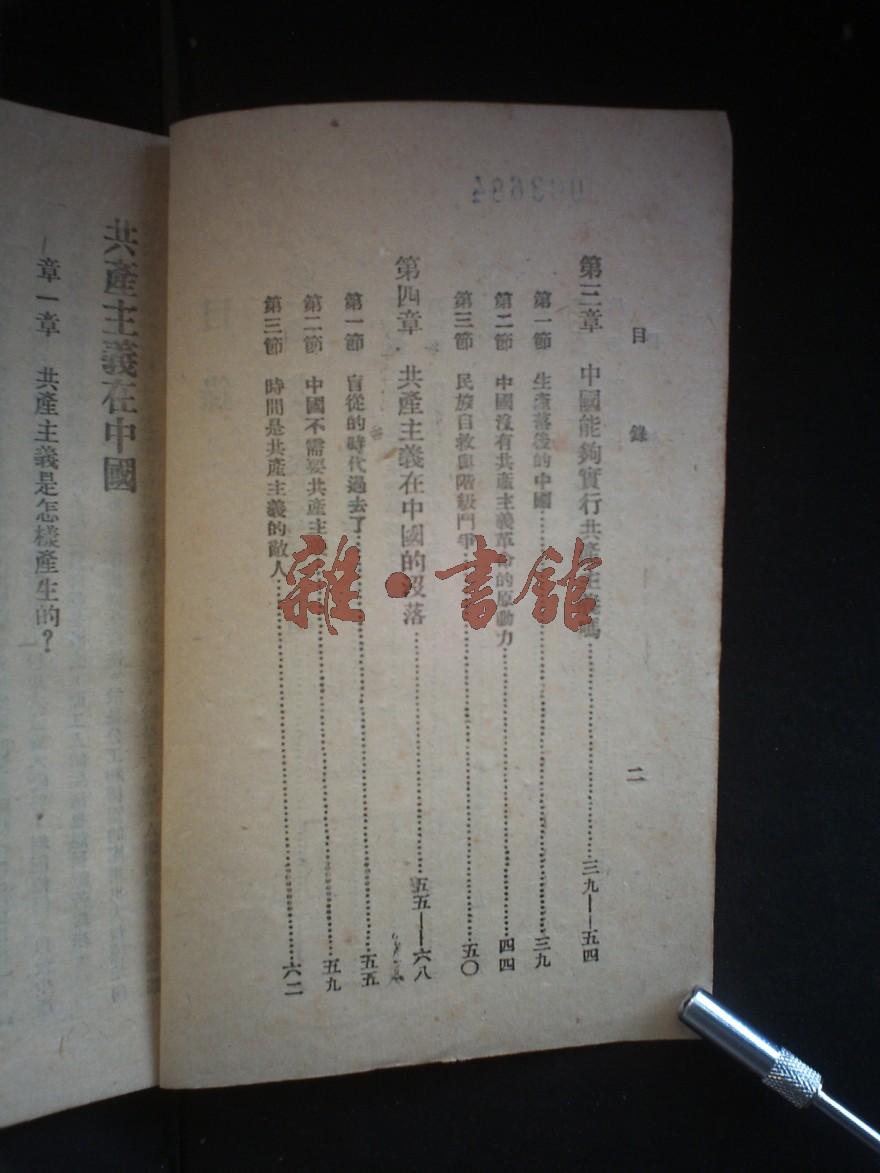 093684
目錄
二
第三章 中國能夠實行共產主義嗎……三九——五四
第一節 生產落後的中國……三九
第二節 中國沒有共產主義革命的原動力……四四
第三節 民族自救與階級鬥爭……五〇
第四章 共產主義在中國的沒落……五五——六八
第一節 盲從的時代過去了……五五
第二節 中國不需要共產主義……五九
第三節 時間是共產主義的敵人……六二
共產主義在中國
章一章 共產主義是怎樣產生的?
雜·書館